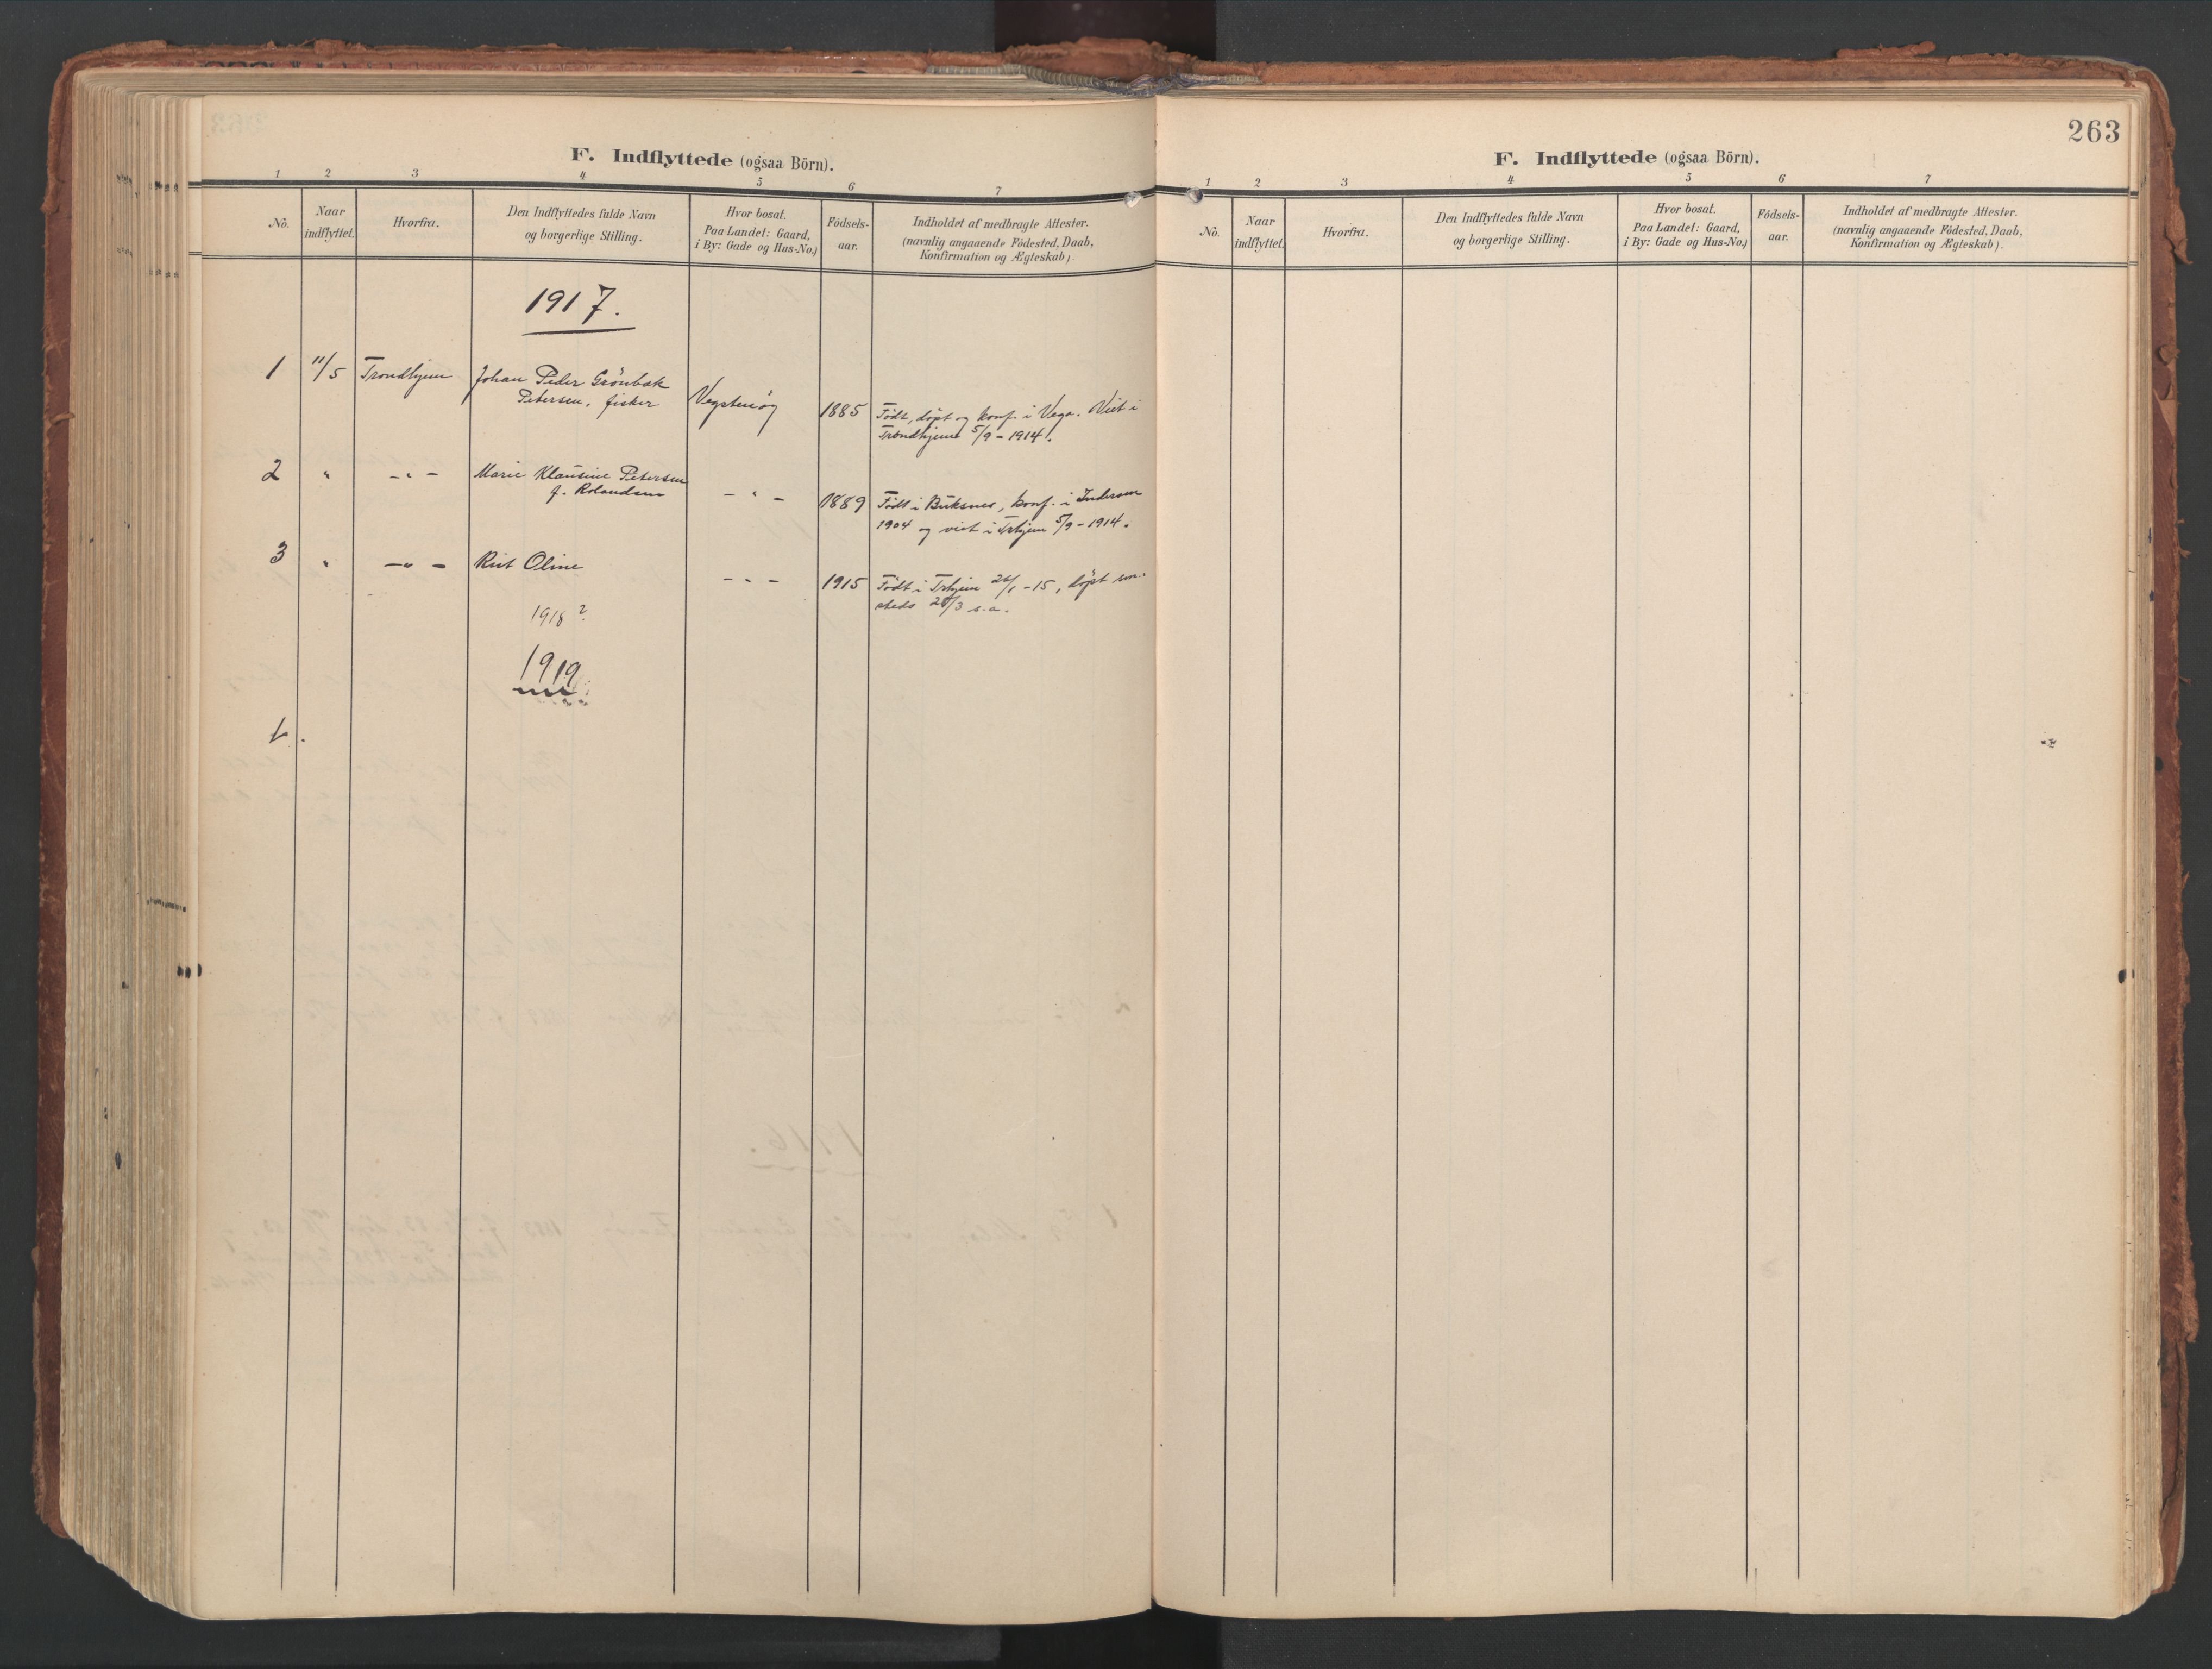 F. Indflyttede (ogsaa Börn).
1 2 3 4 5 6 7
No.
Naar
indflyttet.
Hvorfra.
Den Indflyttedes fulde Navn
og borgerlige Stilling.
Hvor bosat.
Paa Landet: Gaard,
i By: Gade og Hus-No.)
Födsels-
aar.
Indholdet af medbragte Attester.
(navnlig angaaende Födested, Daab,
Konfirmation og Ægteskab).
1917.
1 11/5 Trondhjem Johan Peder Grönbæk
Petersen, fisker Vegstenöy 1885 Födt, döpt og konf. i Vega. Viet i
Trondhjem 5/9 - 1914.
2 " - " - Marie Klausine Petersen
f. Rolandsen - " - 1889 Födt i Buksnes, konf. i
1904 og viet i Trhjem 5/9 - 1914.
3 " - " - Rut Oline
- " - 1915 Födt i Trhjem /1 - 15, döpt
steds /3 s.a.
1918?
1919
1.
263
F. Indflyttede (ogsaa Börn).
1 2 3 4 5 6 7
No.
Naar
indflyttet.
Hvorfra.
Den Indflyttedes fulde Navn
og borgerlige Stilling.
Hvor bosat.
Paa Landet: Gaard,
i By: Gade og Hus-No.)
Födsels-
aar.
Indholdet af medbragte Attester.
(navnlig angaaende Födested, Daab,
Konfirmation og Ægteskab).